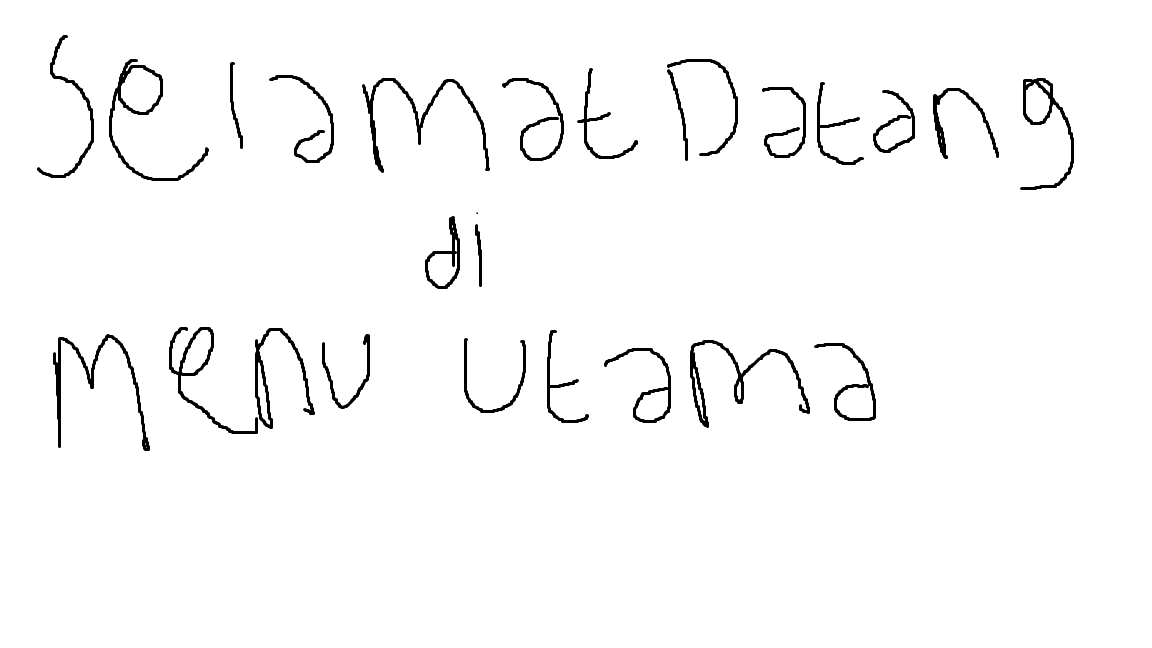 Selamat Datang
di
Menu Utama